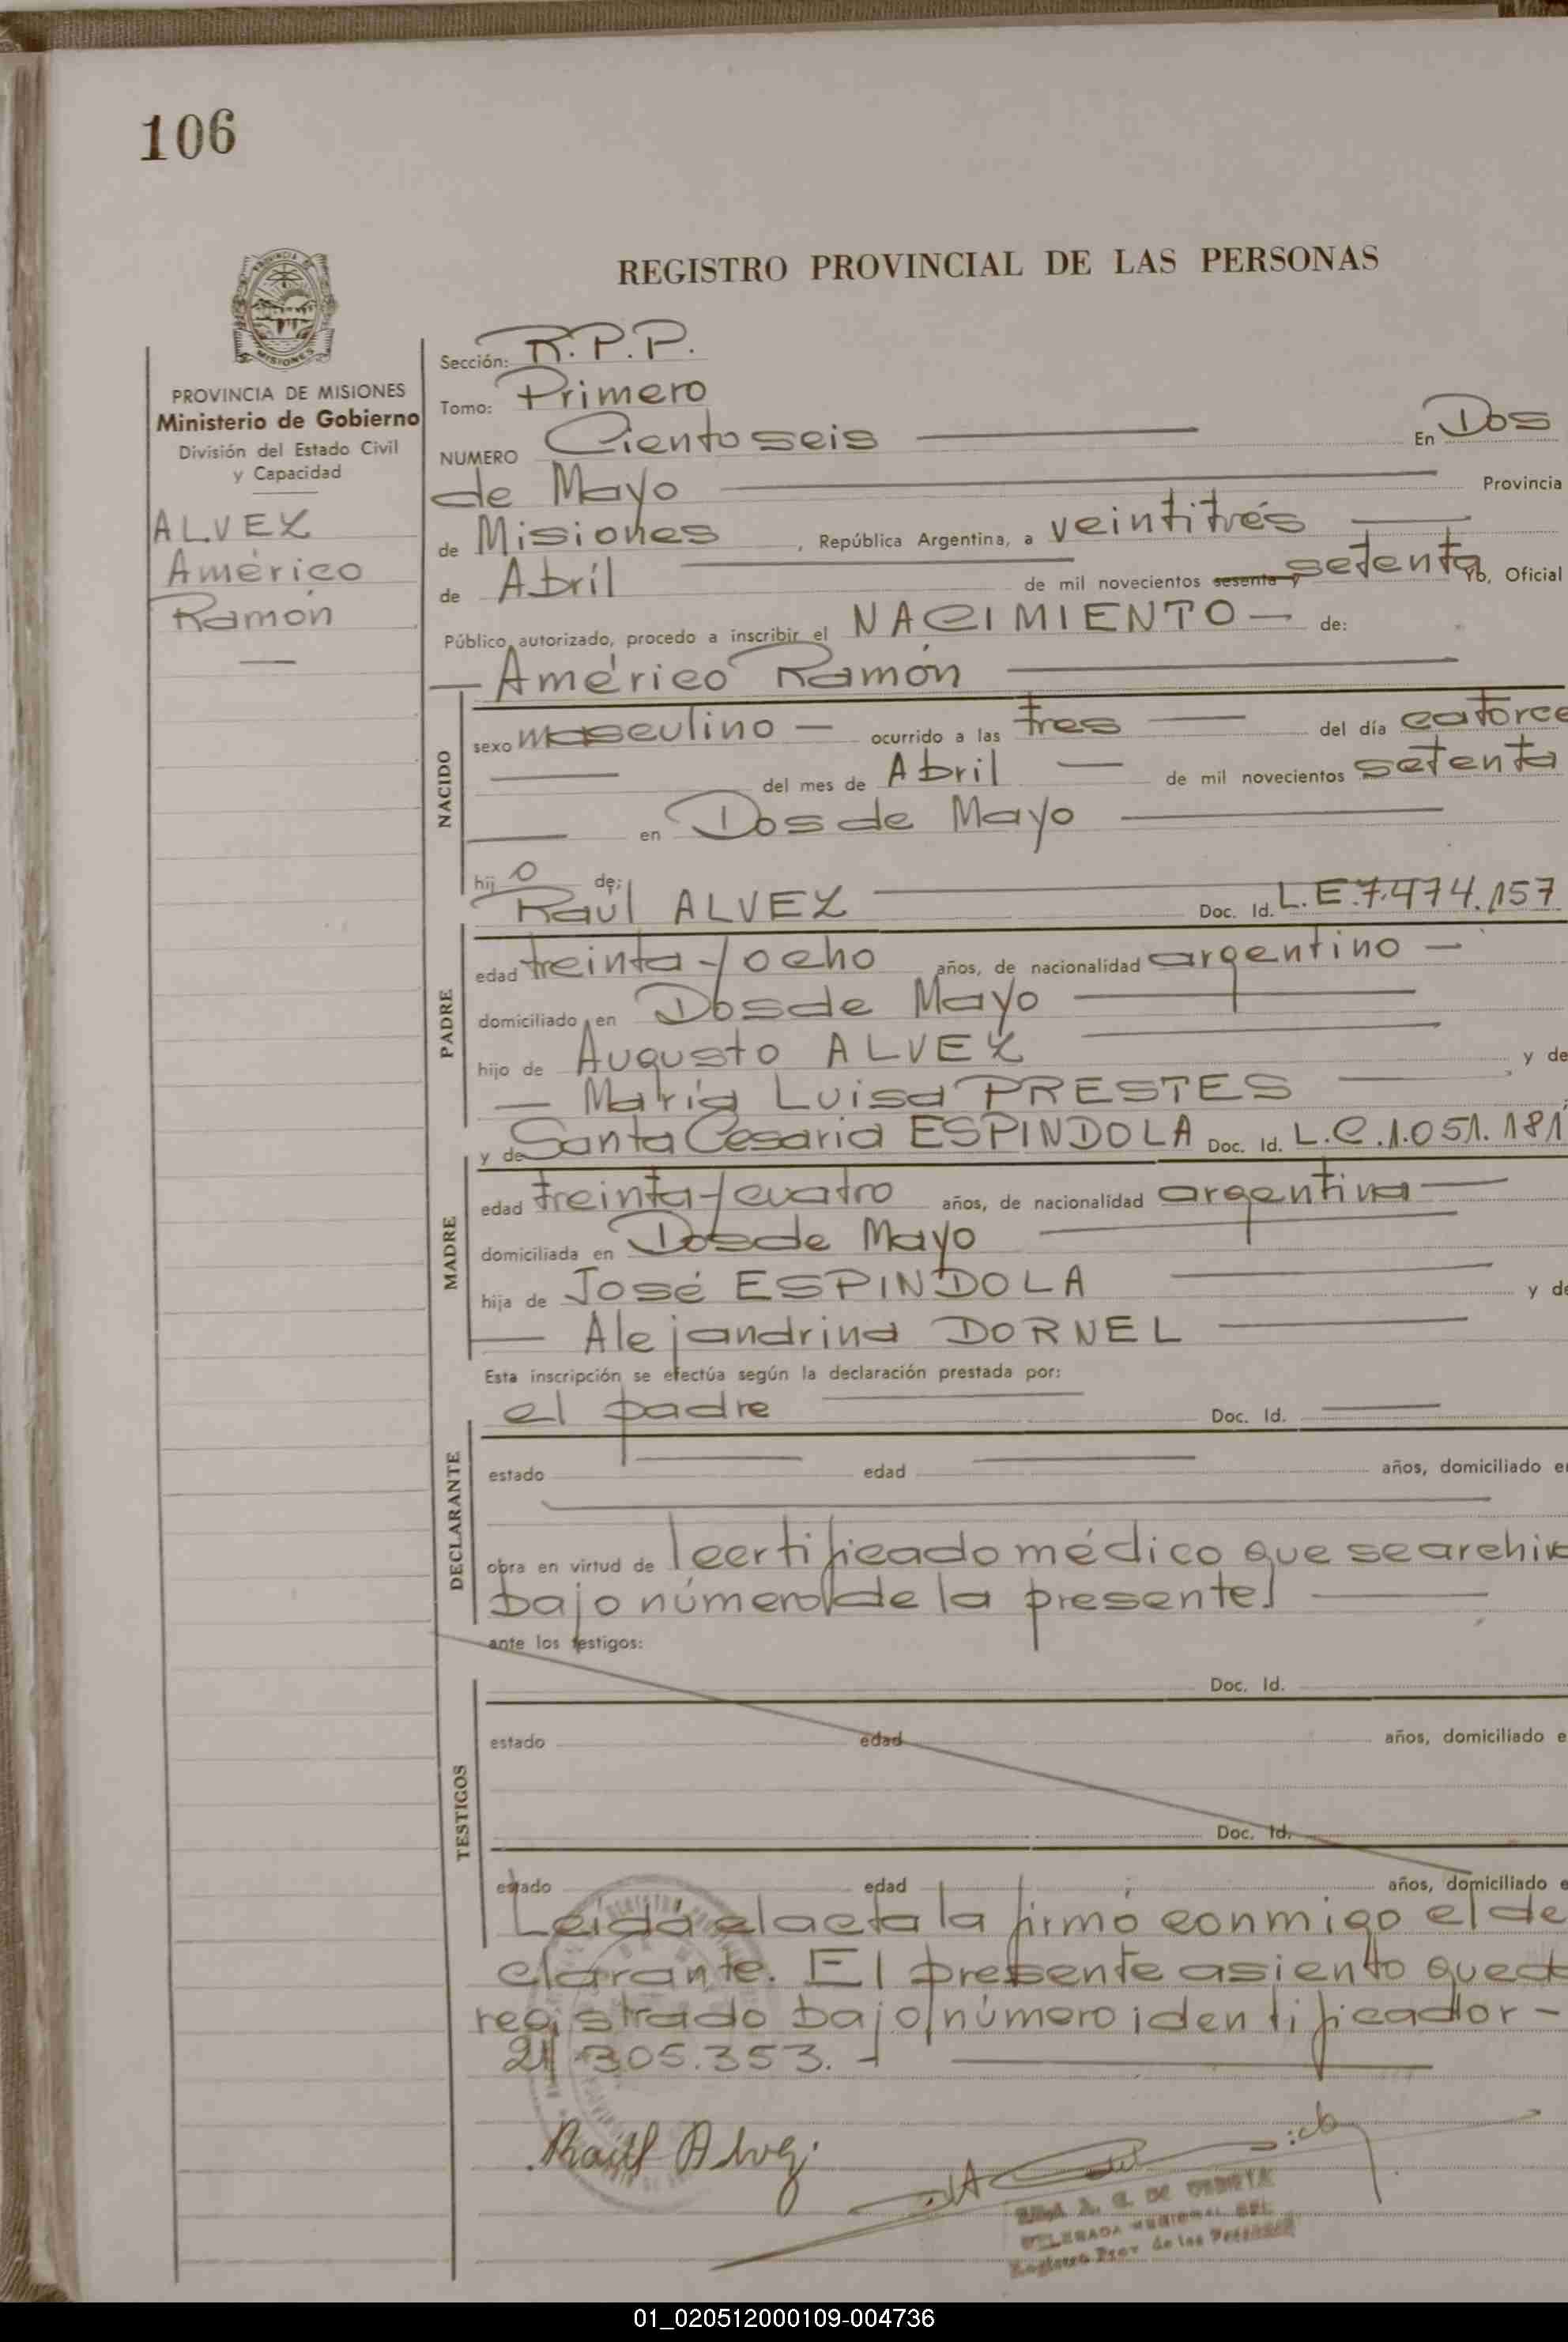 106
REGISTRO PROVINCIAL DE LAS PERSONAS
MISIONES
PROVINCIA DE MISIONES
Ministerio de Gobierno
División del Estado Civil
y Capacidad
ALVEZ
Américo
Ramón
Sección: R.P.P.
Tomo: Primero
NUMERO Ciento seis En Dos
de Mayo Provincia
de Misiones, República Argentina, a veintitrés
de Abril de mil novecientos sesenta y setenta Yo, Oficial
Público autorizado, procedo a inscribir el NACIMIENTO — de:
— Américo Ramón
NACIDO
sexo masculino — ocurrido a las tres del día catorce
del mes de Abril — de mil novecientos setenta
en Dos de Mayo
hij o de:
Raúl ALVEZ Doc. Id. L.E.7.474.157
PADRE
edad treinta y ocho años, de nacionalidad argentino —
domiciliado en Dos de Mayo
hijo de Augusto ALVEZ y de
— María Luisa PRESTES
y de Santa Cesaria ESPINDOLA Doc. Id. L.C.1.051.181
MADRE
edad treinta y cuatro años, de nacionalidad argentina —
domiciliada en Dos de Mayo
hija de José ESPINDOLA y de
— Alejandrina DORNEL
Esta inscripción se efectúa según la declaración prestada por:
el padre Doc. Id.
DECLARANTE
estado edad años, domiciliado en
obra en virtud de l certificado médico que se archiv
bajo número de la presente
ante los testigos:
Doc. Id.
TESTIGOS
estado edad años, domiciliado e
Doc. Id.
estado edad años, domiciliado e
Leída el acta la firmó conmigo el de
clarante. El presente asiento qued
registrado bajo número identificador -
21.305.353. -
Raúl Alvez
DELEGADA REGIONAL DEL
Registro Prov. de las Personas
01_020512000109-004736